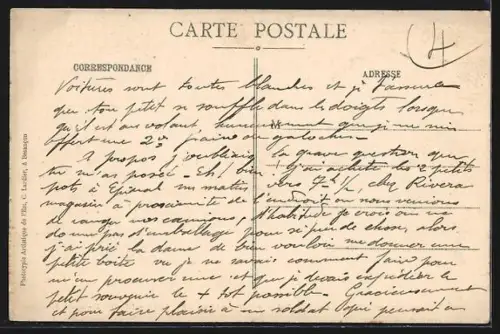 CARTE POSTALE
4
CORRESPONDANCE
ADRESSE
Voitures sont toutes blanches et je t'assure
que ton petit se souffle dans les doigts lorsque
qu'il est au volant, heureusement que je me suis
offert une 2e paire de galoches
M
A propos j'oubliais la grave question que
tu m'as posée - Eh! bien! j'ai acheté les 2 petits
pots à Epinal un matin vers 7h 1/2, chez Rivera
magasin à proximité de l'endroit où nous venions
de ranger nos camions, d'habitude je crois on ne
donne pas d'emballage pour si peu de chose, alors
j'ai prié la dame de bien vouloir me donner une
petite boite vu je ne savais comment faire pour
m'en procurer une et que je devais expédier le
petit souvenir le + tot possible. Gracieusement
et pour faire plaisir à un soldat qui pensait en
Phototypie Artistique de l'Est, C. Lardier, à Besançon